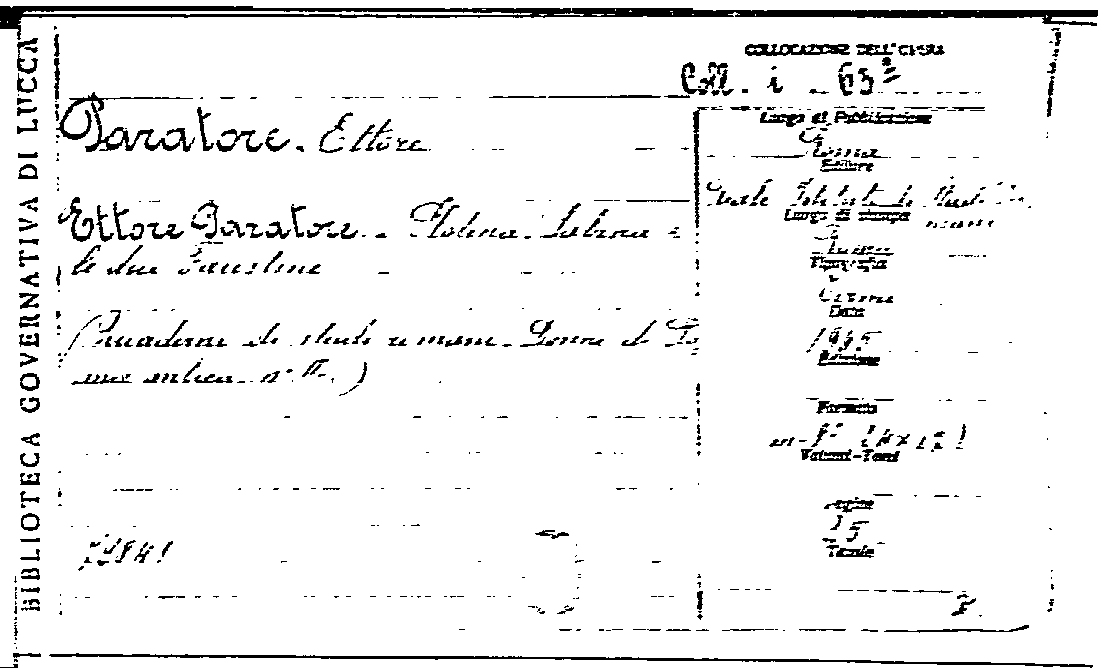 BIBLIOTECA GOVERNATIVA DI LUCCA
COLLOCAZIONE DELL'OPERA
Coll. i. 65
Paratore. Ettore
Ettore Paratore. Plotina. Sabina e
le due Faustine
(Quaderni di studi romani. Donne di Ro
ma antica. n°
Luogo di Pubblicazione
Roma
Editore
Reale Istituto di Studi Ro
mani
Luogo di stampa
Roma
Tipografia
Data
1945
Edizione
Formato
in-8°
Volumi-Tomi
Pagine
25
Tavole